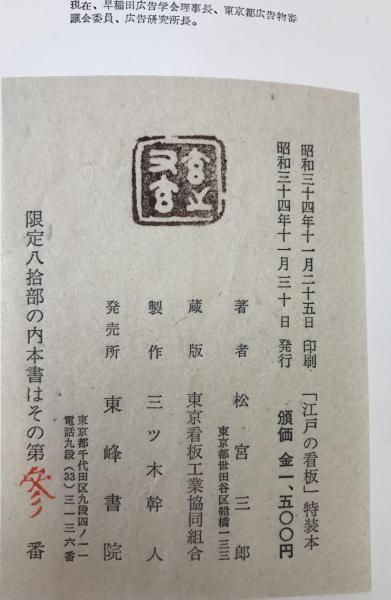 現在、早稲田広告学会理事長、東京都広告物審
議会委員、広告研究所長。
「江戸の看板」特装本
頒価 金一、五〇〇円
昭和三十四年十一月二十五日 印刷
昭和三十四年十一月三十日 発行
著者 松宮三郎
東京都世田谷区船橋一三三
蔵版 東京看板工業協同組合
製作 三ツ木幹人
発売所 東峰書院
東京都千代田区九段四ノ一一
電話九段(33)三一三六番
限定八拾部の内本書はその第参番